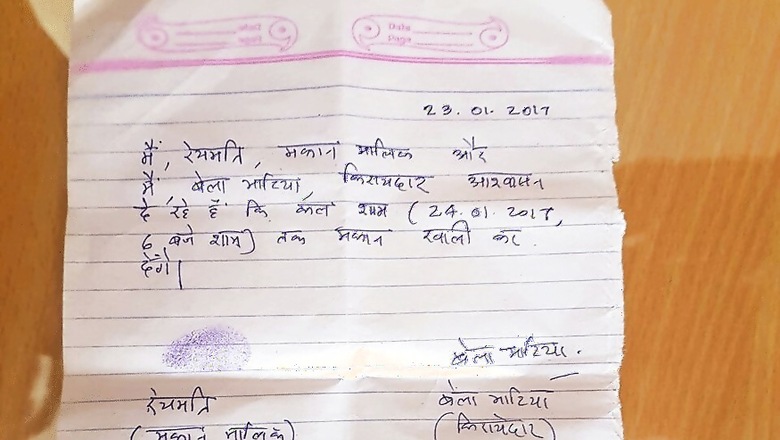 Date
Page
23.01.2017
मैं, रेयमति, मकान मालिक और
मैं, बेला भाटिया, किरायदार आश्वासन
दे रहे हैं कि कल शाम (24.01.2017,
6 बजे शाम) तक मकान खाली कर
देंगे।
बेला भाटिया.
रेयमति
बेला भाटिया
(मकान मालिक)
(किरायेदार)